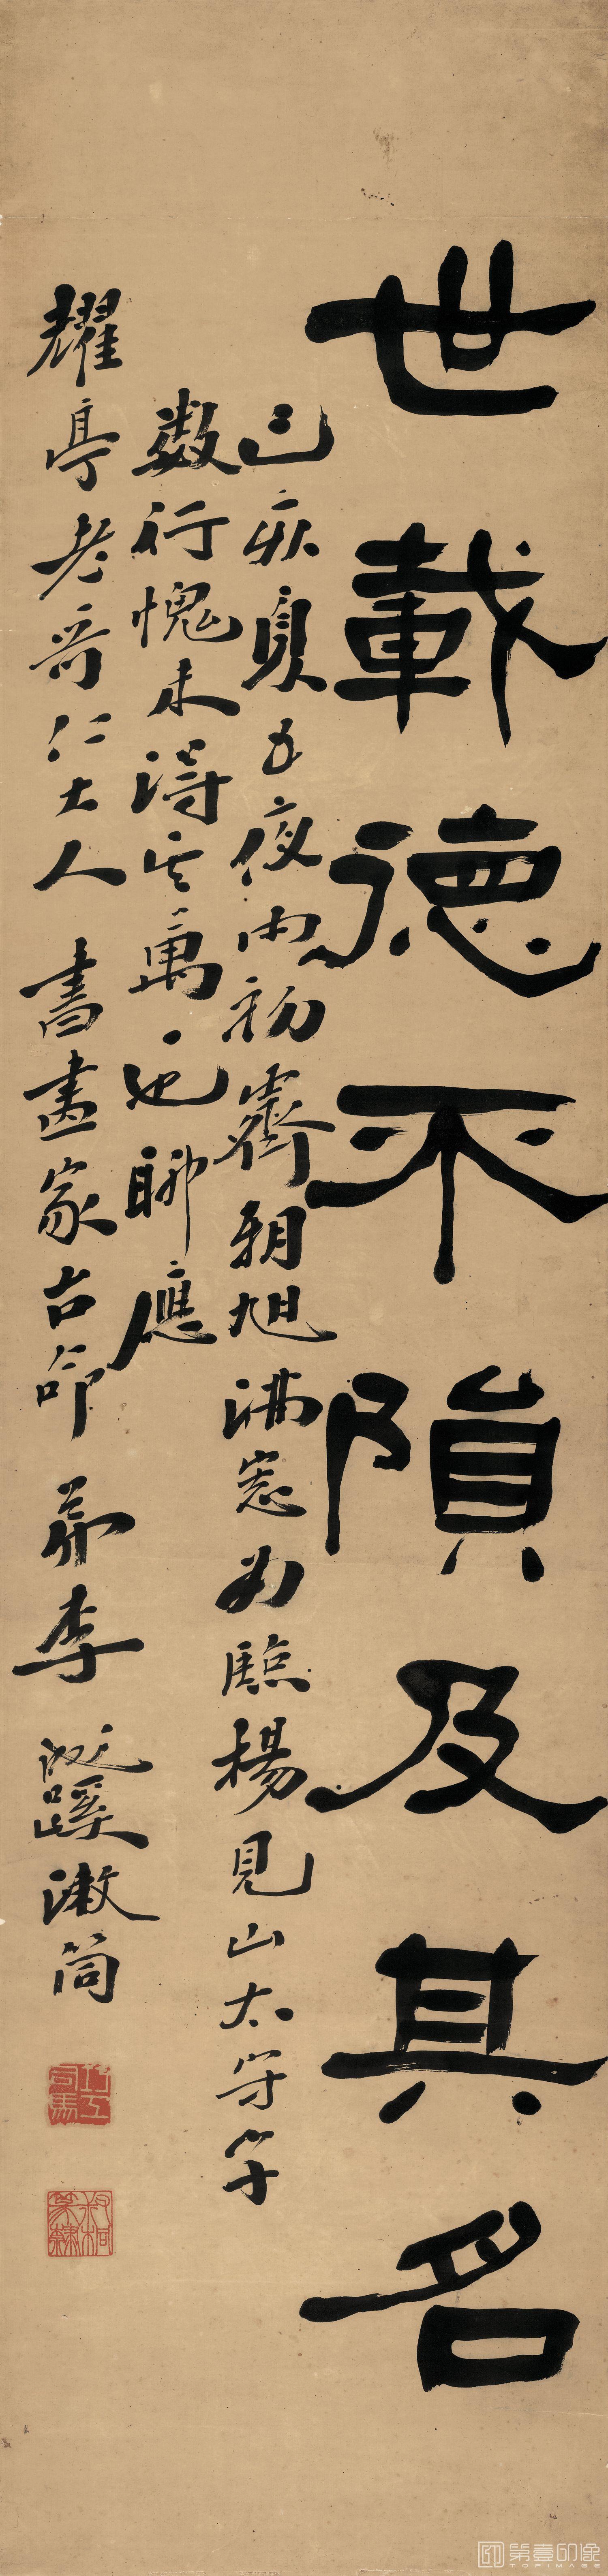 世載德不隕及其名
己亥夏五夜雨初霽朝旭滿窓為臨楊見山太守字
數行愧未得其萬一也聊應
耀亭老哥仁大人 書畫家古命 弟李 蹊漱筒
第壹印像
TOPIMAGE